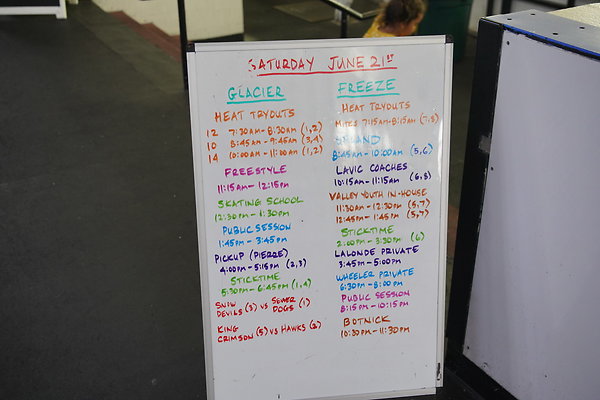 SATURDAY JUNE 21ST
GLACIER
HEAT TRYOUTS
12 7:30AM - 8:30AM (1,2)
10 8:45AM - 9:45AM (3,4)
14 10:00AM - 11:00AM (1,2)
FREESTYLE
11:15AM - 12:15PM
SKATING SCHOOL
12:30PM - 1:30PM
PUBLIC SESSION
1:45PM - 3:45PM
PICKUP (PIERRE)
4:00PM - 5:15PM (2,3)
STICKTIME
5:30PM - 6:45PM (1,4)
SNOW DEVILS (3) VS SEWER DOGS (1)
KING CRIMSON (5) VS HAWKS (2)
FREEZE
HEAT TRYOUTS
MITES 7:15AM - 8:15AM (7,8)
8:45AM - 10:00AM (5,6)
LAVIC COACHES
10:15AM - 11:15AM (6,8)
VALLEY YOUTH IN-HOUSE
11:30AM - 12:30PM (5,7)
12:45PM - 1:45PM (5,7)
STICKTIME
2:00PM - 3:30PM (6)
LALONDE PRIVATE
3:45PM - 5:00PM
WHEELER PRIVATE
6:30PM - 8:00PM
PUBLIC SESSION
8:15PM - 10:15PM
BOTNICK
10:30PM - 11:30PM